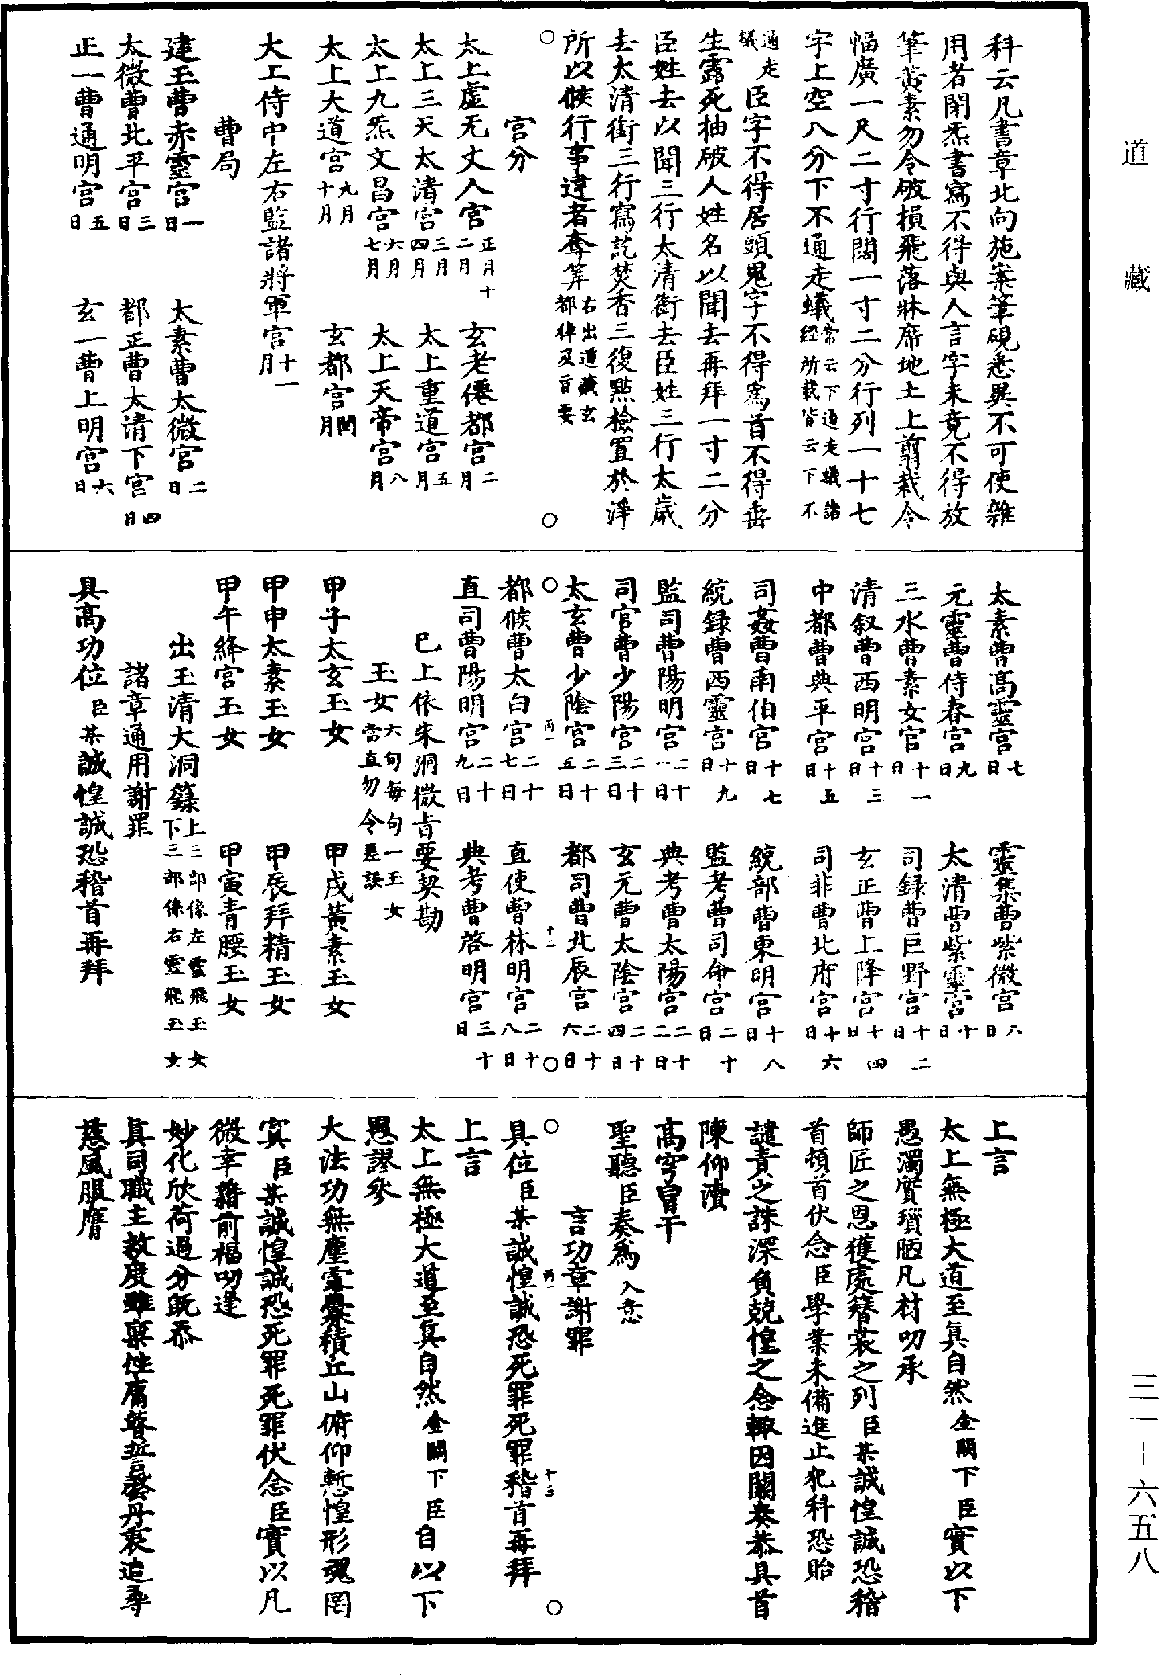 道藏
科云凡書章北向施案筆硯悉異不可使雜
用者閉炁書寫不得與人言字未竟不得放
筆黃素勿令破損飛落牀席地土上剪裁令
幅廣一尺二寸行闊一寸二分行列一十七
字上空八分下不通走蟻常云下通走蟻諸經所載皆云下不
通走蟻臣字不得居頭鬼字不得寫首不得垂
生露死抽破人姓名以聞去再拜一寸二分
臣姓去以聞三行太清銜去臣姓三行太歲
去太清銜三行寫訖焚香三復點檢置於淨
所以候行事違者奪筭右出道藏玄都律及旨要
宮分
太上虛无丈人宮正月十二月
玄老僊都宮二月
太上三天太清宮三月四月
太上重道宮五月
太上九炁文昌宮六月七月
太上天帝宮八月
太上大道宮九月十月
玄都宮閏月
大工侍中左右監諸將軍宮十一月
曹局
建王曹赤靈宮一日
太素曹太微宮二日
太微曹北平宮三日
都正曹太清下宮四日
正一曹通明宮五日
玄一曹上明宮六日
太素曹高靈宮七日
靈集曹紫微宮八日
元靈曹侍春宮九日
太清曹紫靈宮十日
三水曹素女宮十一日
司録曹巨野宮十二日
清叙曹西明宮十三日
玄正曹上降宮十四日
中都曹典平宮十五日
司非曹北府宮十六日
司姦曹南伯宮十七日
統部曹東明宮十八日
統録曹西靈宮十九日
監考曹司命宮二十日
監司曹陽明宮二十一日
典考曹太陽宮二十二日
司官曹少陽宮二十三日
玄元曹太陰宮二十四日
太玄曹少陰宮二十五日
都司曹北辰宮二十六日
都候曹太白宮二十七日
直使曹林明宮二十八日
直司曹陽明宮二十九日
典考曹啓明宮三十日
已上依朱洞微旨要契勘
玉女六旬每旬一玉女當直勿令悮誤
甲子太玄玉女
甲戌黃素玉女
甲申太素玉女
甲辰拜精玉女
甲午絳宮玉女
甲寅青腰玉女
出玉清大洞籙上三部係左靈飛玉女下三部係右靈飛玉女
諸章通用謝罪
具高功位臣某誠惶誠恐稽首再拜
上言
太上無極大道至真自然金闕下臣實以下
愚濁質瓚陋凡材叨承
師匠之恩獲處簪裳之列臣某誠惶誠恐稽
首頓首伏念臣學業未備進止犯科恐貽
譴責之誅深負兢惶之念輙因關奏恭具首
陳仰瀆
高穹冒干
聖聽臣奏爲入意
言功章謝罪
具位臣某誠惶誠恐死罪死罪稽首再拜
上言
太上無極大道至真自然金闕下臣自以下
愚謬參
大法功無塵露舋積丘山俯仰慙惶形魂罔
寘臣某誠惶誠恐死罪死罪伏念臣實以凡
微幸藉前福叨逢
妙化欣荷過分既忝
真司職主教度雖稟性庸瞽誓罄丹衷追尋
慈風服膺
三一－六五八